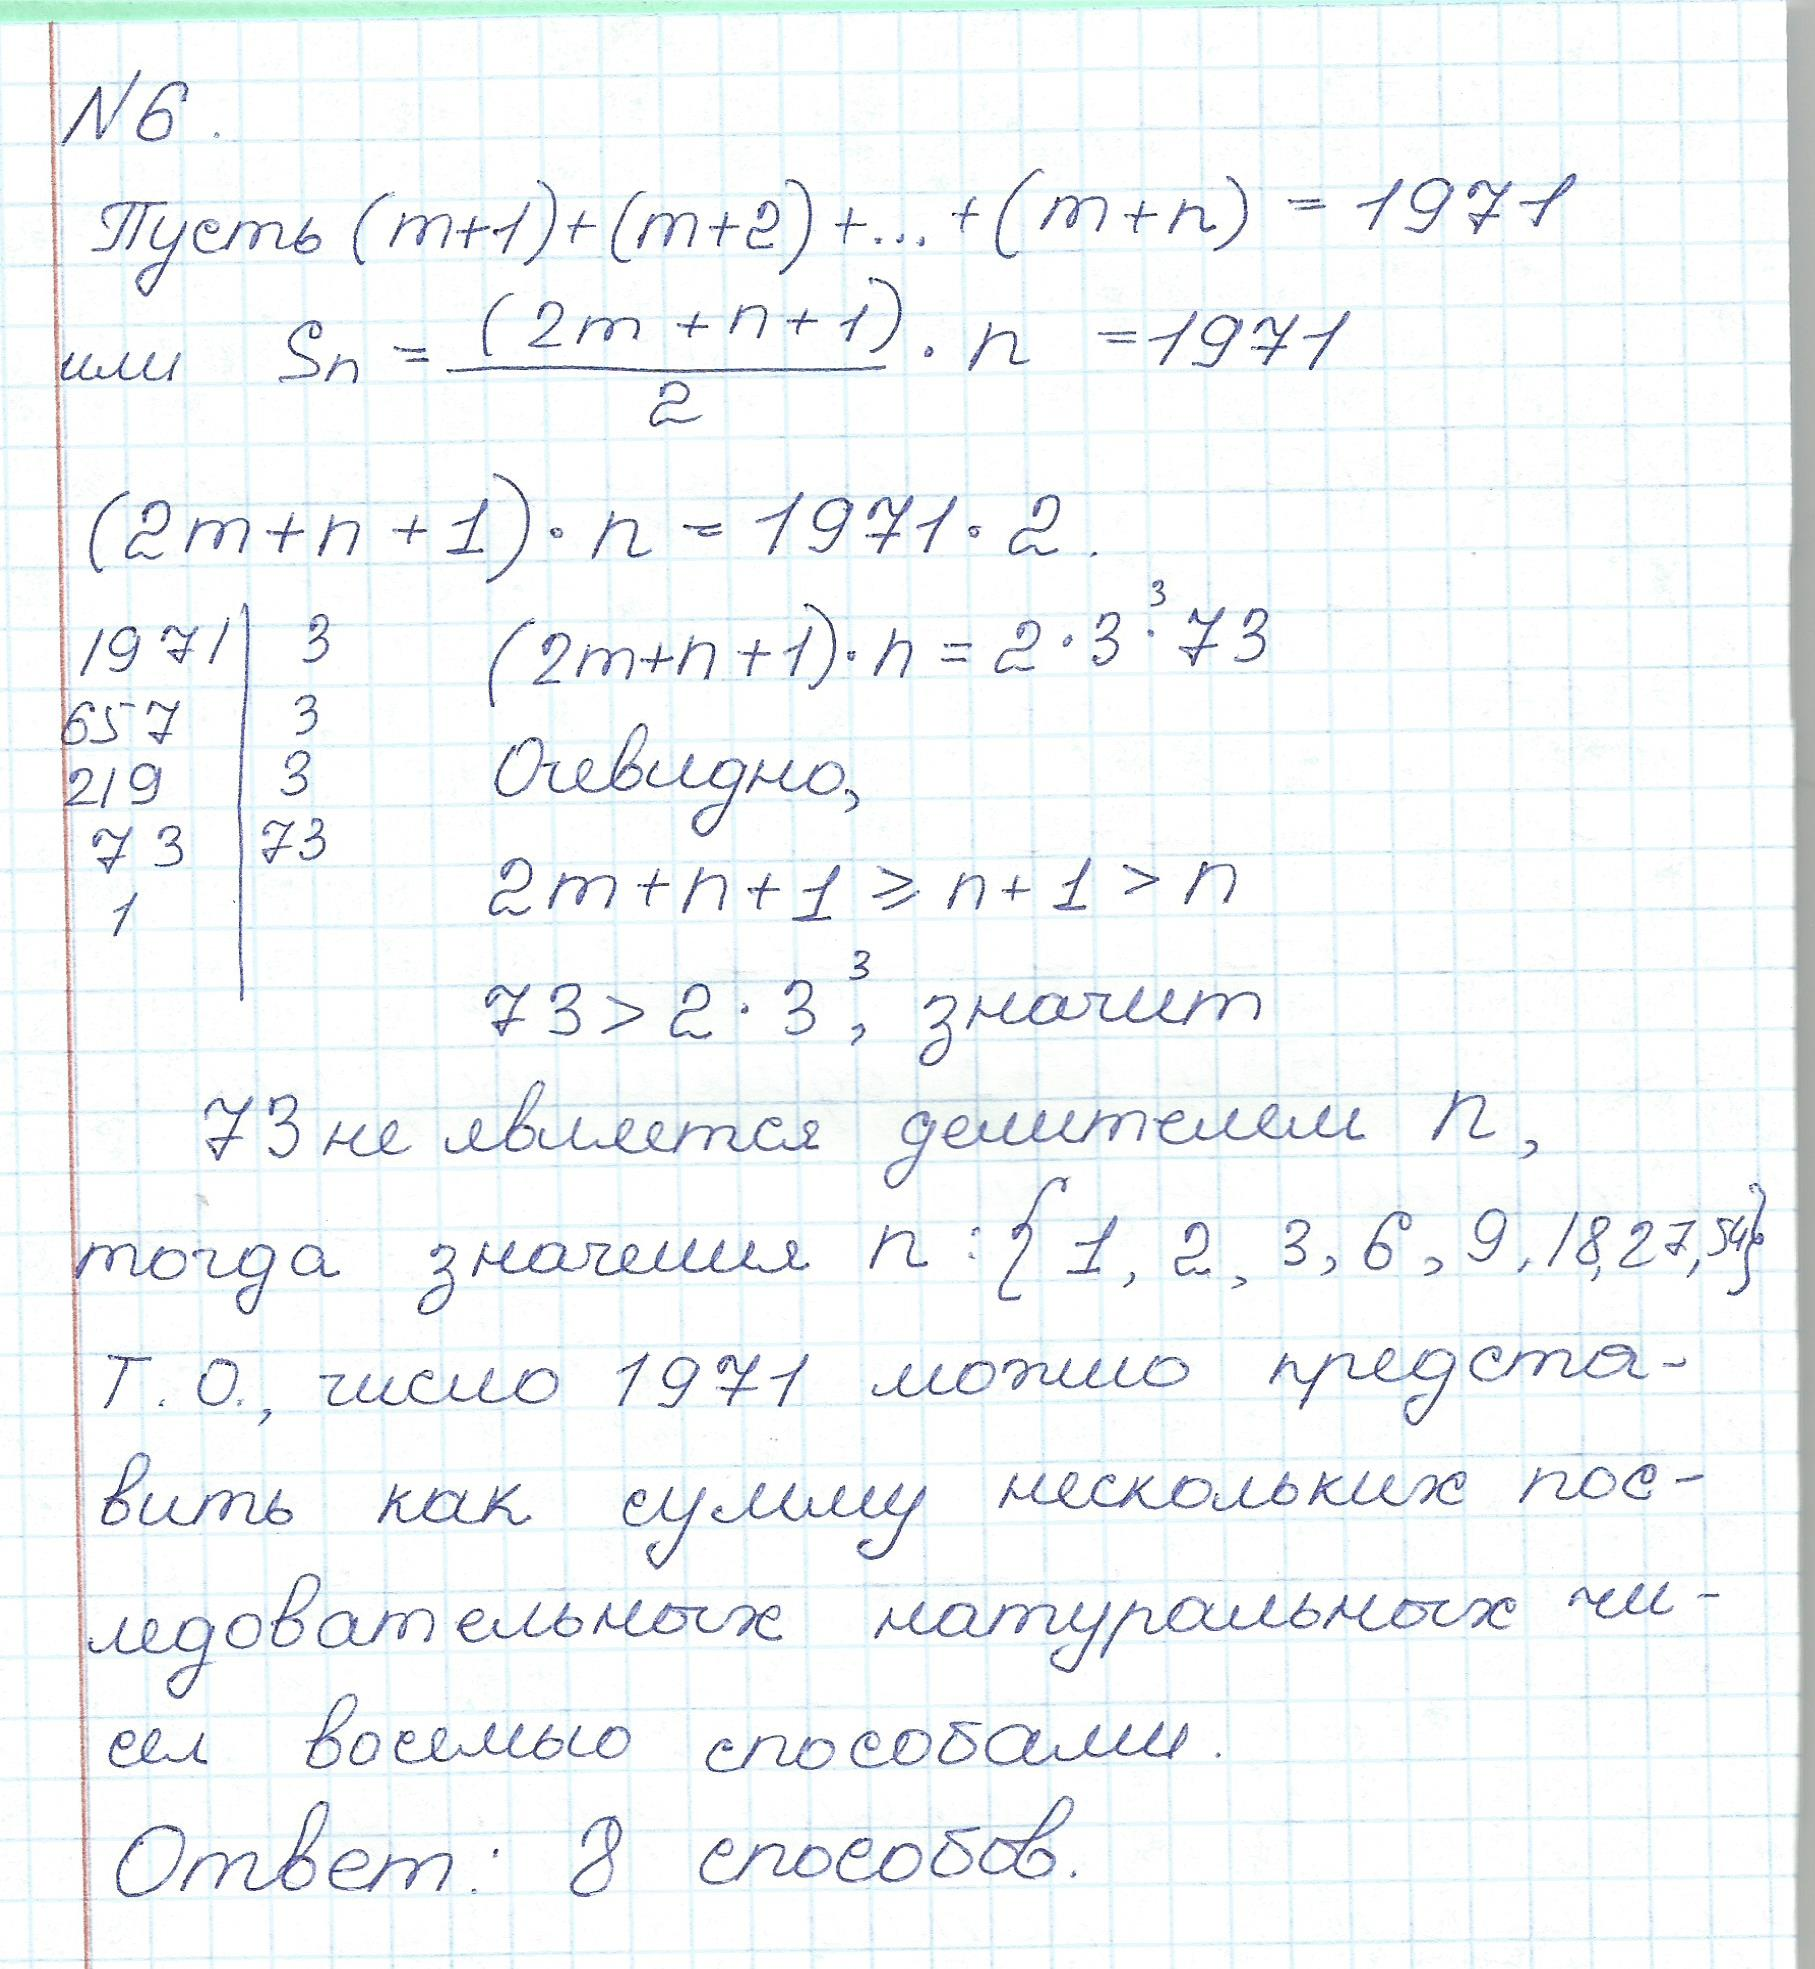 N6.
Пусть (m+1)+(m+2)+...+(m+n) = 1971
или Sn = (2m+n+1)/2 · n = 1971
(2m+n+1)·n = 1971·2.
1971 | 3 (2m+n+1)·n = 2·3³·73
657 | 3
219 | 3 Очевидно,
73 | 73
1 2m+n+1 ⩾ n+1 > n
73 > 2·3³, значит
73 не является делителем n,
тогда значения n : {1, 2, 3, 6, 9, 18, 27, 54}
Т.О., число 1971 можно предста-
вить как сумму нескольких пос-
ледовательных натуральных чи-
сел восемью способами.
Ответ: 8 способов.